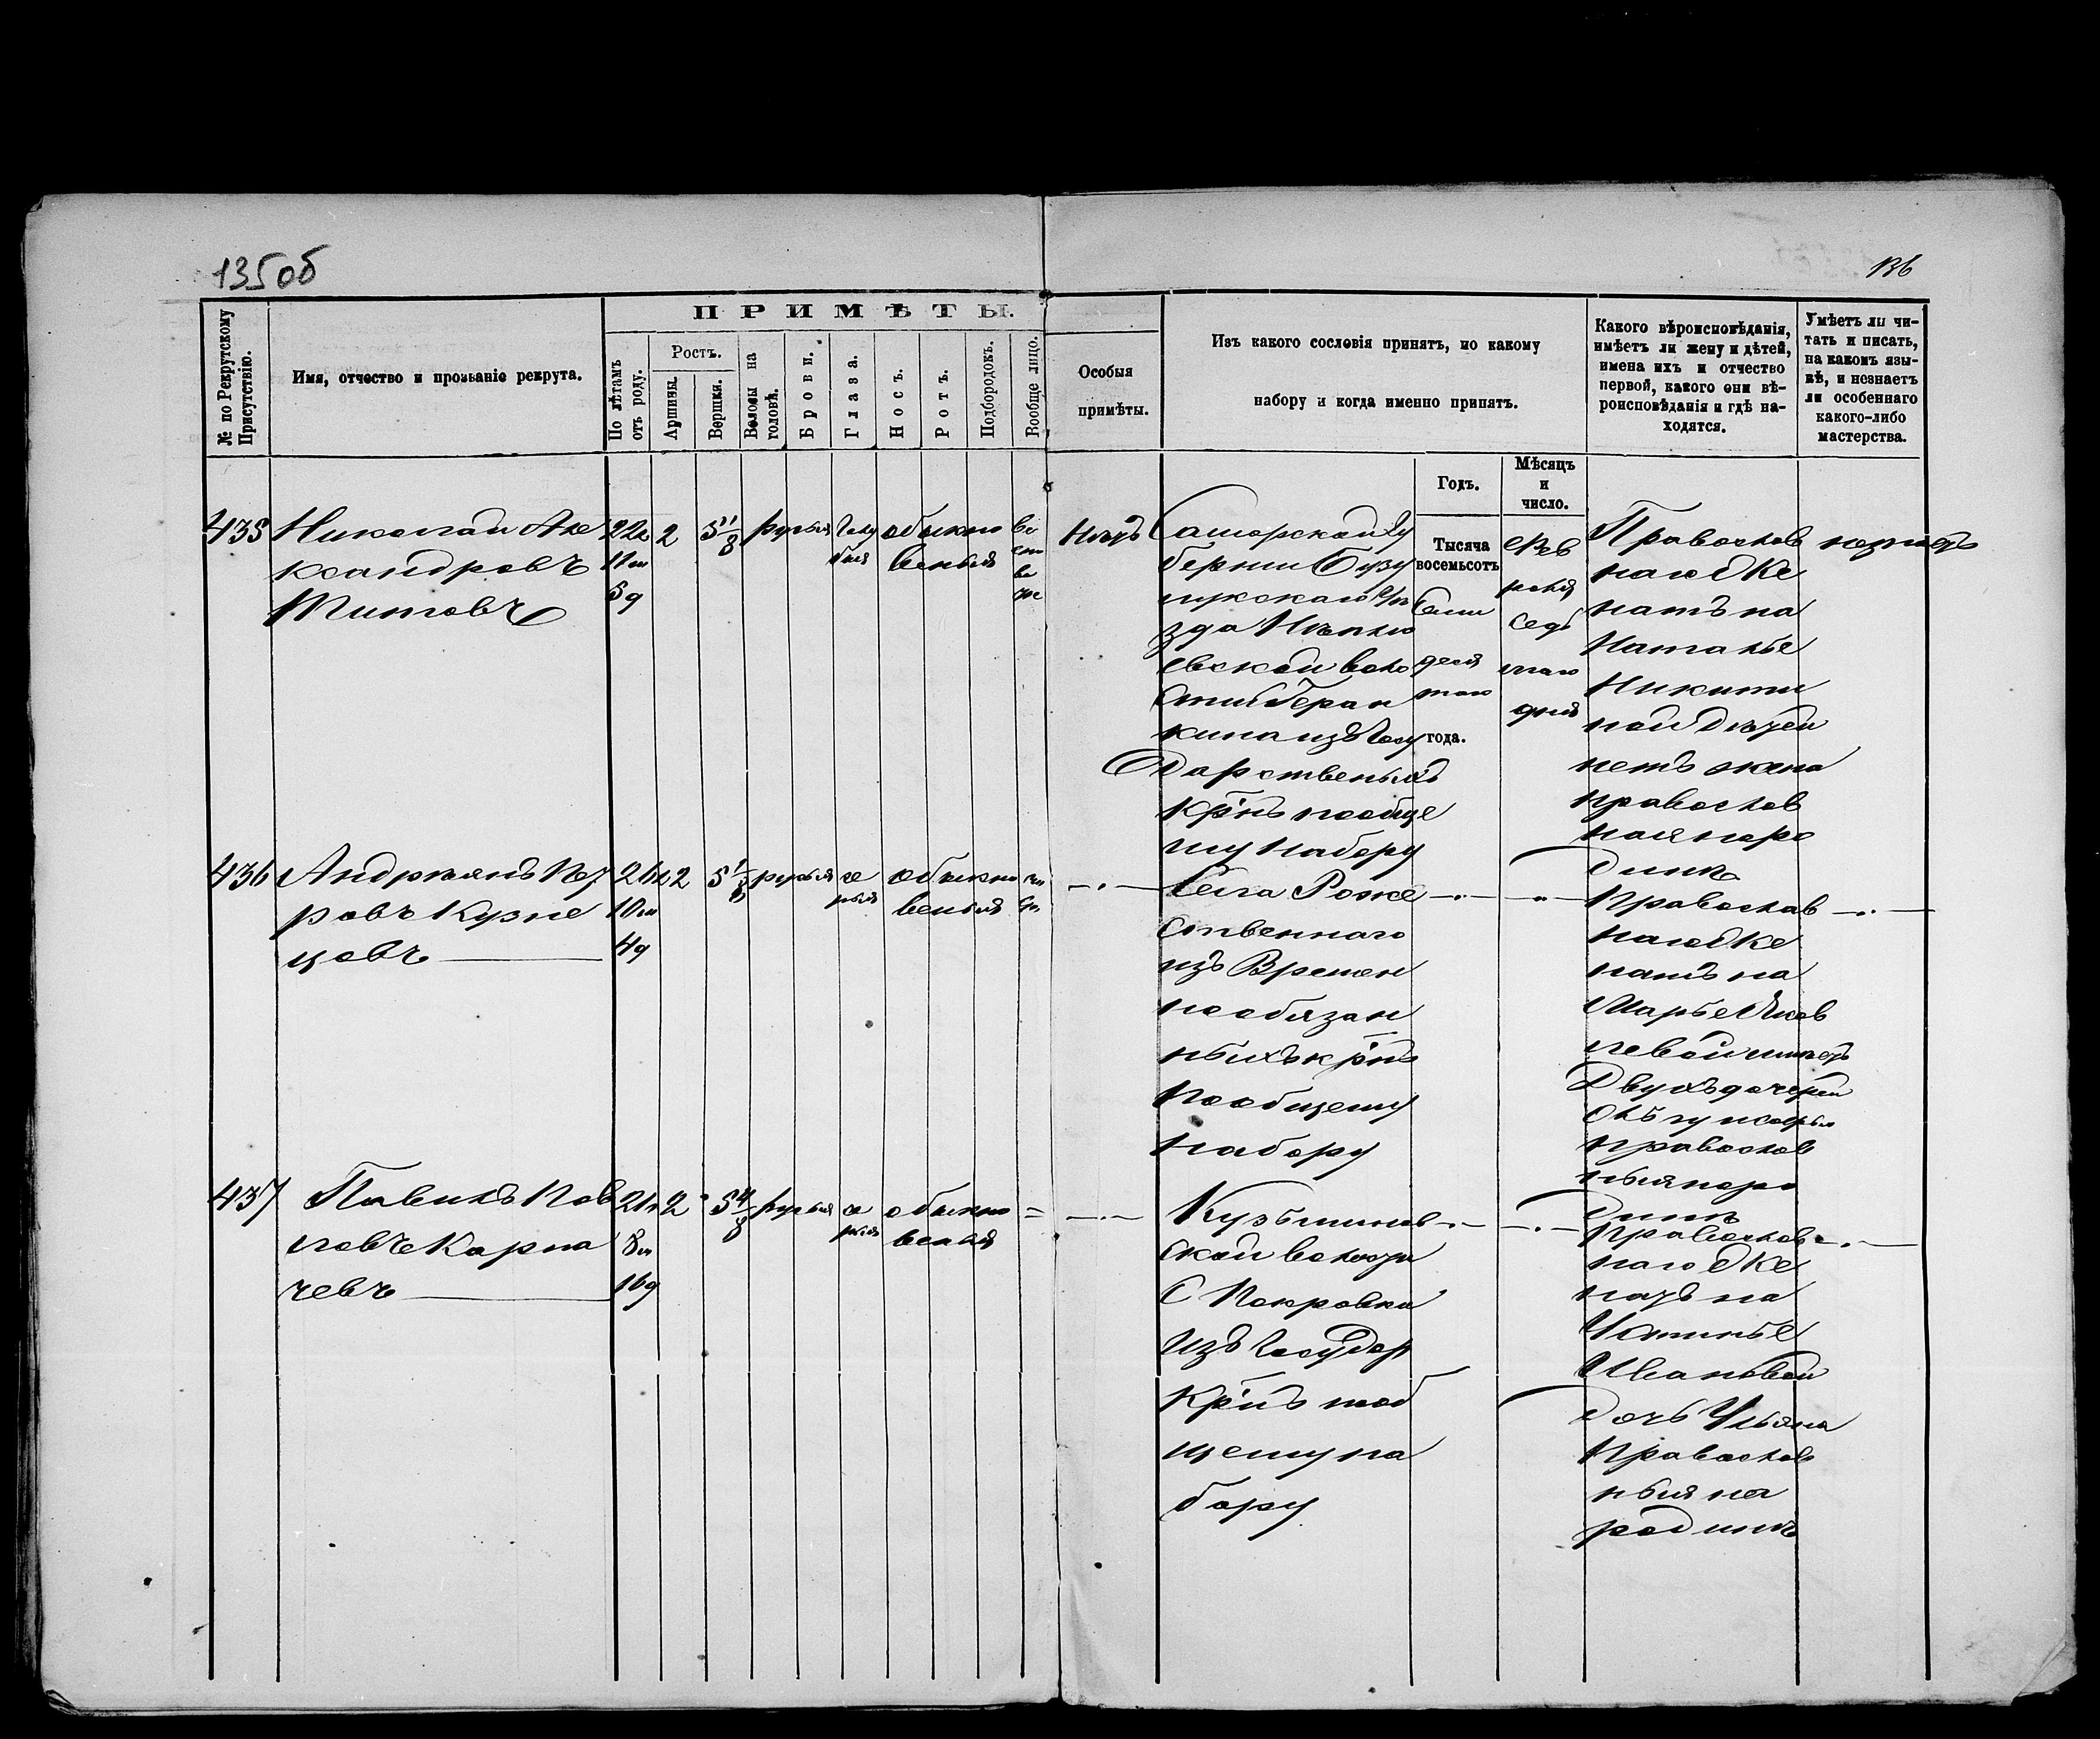 135об
136
ПРИМѢТЫ.
№ по Рекрутскому Присутствію.
Имя, отчество и прозваніе рекрута.
По лѣтамъ отъ роду.
Ростъ.
Аршины.
Вершки.
Волосы на головѣ.
Брови.
Глаза.
Носъ.
Ротъ.
Подбородокъ.
Вообще лицо.
Особыя
примѣты.
Изъ какого сословія принятъ, по какому
набору и когда именно принятъ.
Годъ.
Мѣсяцъ
и
число.
Какого вѣроисповѣданія,
имѣетъ ли жену и дѣтей,
имена ихъ и отчество
первой, какого они вѣ-
роисповѣданія и гдѣ на-
ходятся.
Умѣетъ ли чи-
тать и писать,
на какомъ язы-
кѣ, и незнаетъ
ли особеннаго
какого-либо
мастерства.
435
Николай Але
ксандровъ
Титовъ
22л
11м
5д
2
5 1/8
русыя
голу
быя
обыкно
веныя
Нѣтъ
Самарской Гу
берніи Бузу
лукскаго Уѣ
зда
евской воло
сти
кина изъ Госу
дарственыхъ
Кр̃нъ пообще
му набору
Тысяча
восемьсотъ
Семи
деся
таго
года.
Фев
раля
Седь
маго
дня
Православ
наго Же
натъ на
Наталье
Никити
ной Дѣтей
нетъ жена
православ
ная наро
динѣ
436
Андреянъ Пет
ровъ Кузне
цовъ
21л
10м
4д
2
5 1/8
русыя
се
рыя
обыкно
веныя
Села Роже
ственнаго
изъ Времен
нообязан
ныхъ кр̃нъ
Пообщему
набору
Православ
наго Же
натъ на
Марье Яков
левой имѣетъ
Двухъ дочерей
православ
ныя наро
динѣ
437
Павелъ Пав
ловъ Карпа
чевъ
21л
8м
16д
2
5 4/8
русыя
се
рыя
обыкно
веныя
Кузьминов
ской волости
С Покровки
Изъ Государ
Кр̃нъ пооб
щему на
бору
Православ
наго Же
натъ на
Устинье
Ивановой
Дочь Ульяна
Православ
ныя на
родинѣ